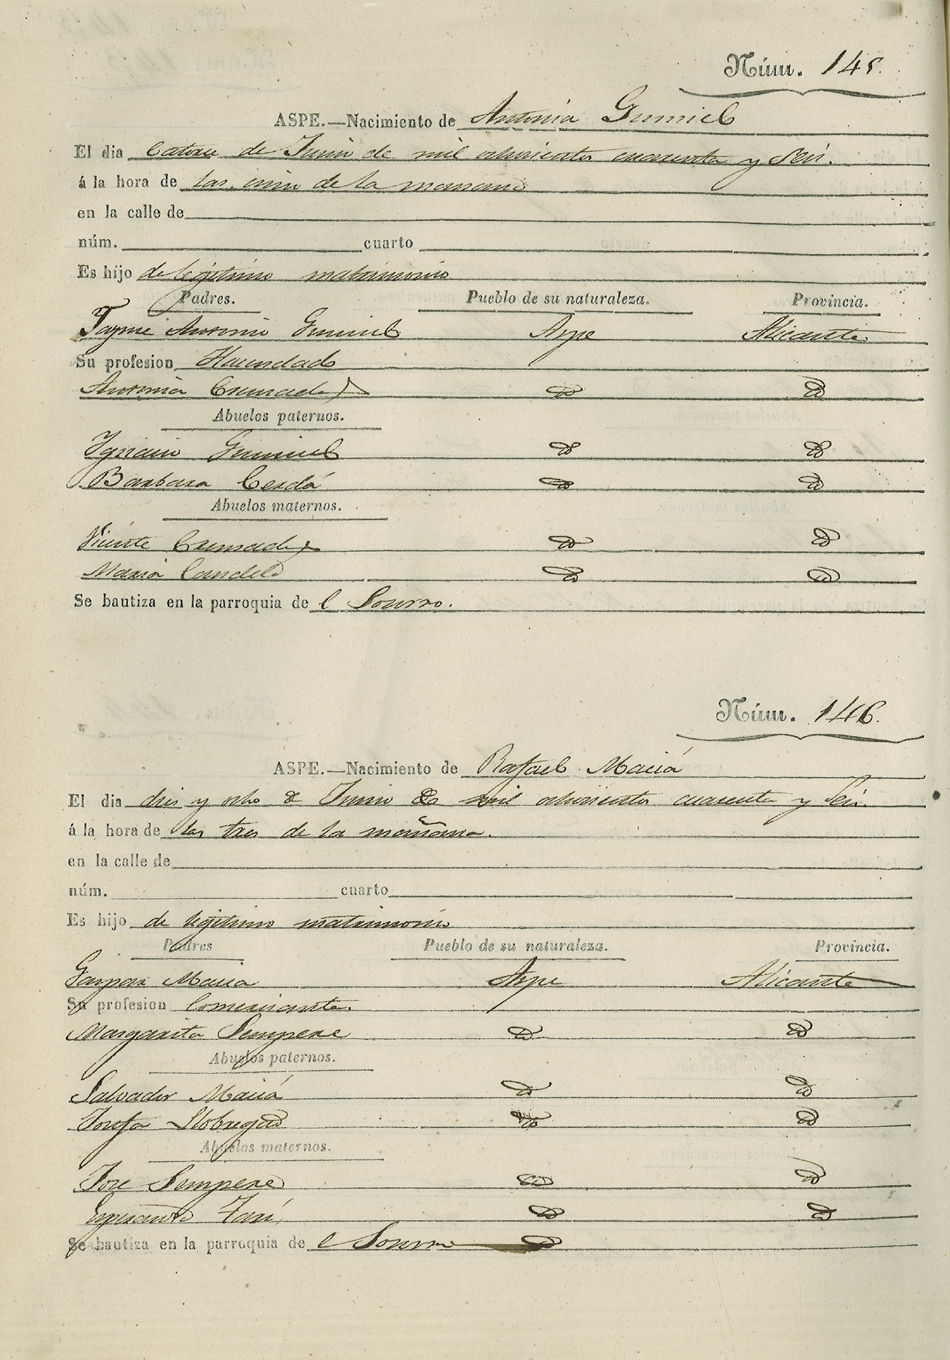 Núm. 145.
ASPE.—Nacimiento de Antonia Gumiel
El dia Catorce de Junio de mil ochocientos cuarenta y Seis.
á la hora de las cinco de la manana
en la calle de
núm. cuarto
Es hijo de legitimo matrimonio
Padres. Pueblo de su naturaleza. Provincia.
Jayme Antonio Gumiel Aspe Alicante
Su profesion Hacendado
Antonia Cremades Id Id
Abuelos paternos.
Ygnacio Gumiel Id Id
Barbara Cerdá Id Id
Abuelos maternos.
Vicente Cremades Id Id
Maria Candela Id Id
Se bautiza en la parroquia de l Socorro.
Núm. 146.
ASPE.—Nacimiento de Rafael Maciá
El dia dies y ocho de Junio de mil ochocientos cuarenta y Seis.
á la hora de las tres de la mañana.
en la calle de
núm. cuarto
Es hijo de legitimo matrimonio
Padres Pueblo de su naturaleza. Provincia.
Gaspar Macia Aspe Alicante
Su profesion Comerciante.
Margarita Sempere Id Id
Abuelos paternos.
Salvador Maciá Id Id
Josefa Llobregad Id Id
Abuelos maternos.
Jose Sempere Id Id
Esperanza Tari, Id Id
Se bautiza en la parroquia de l Socorro Id